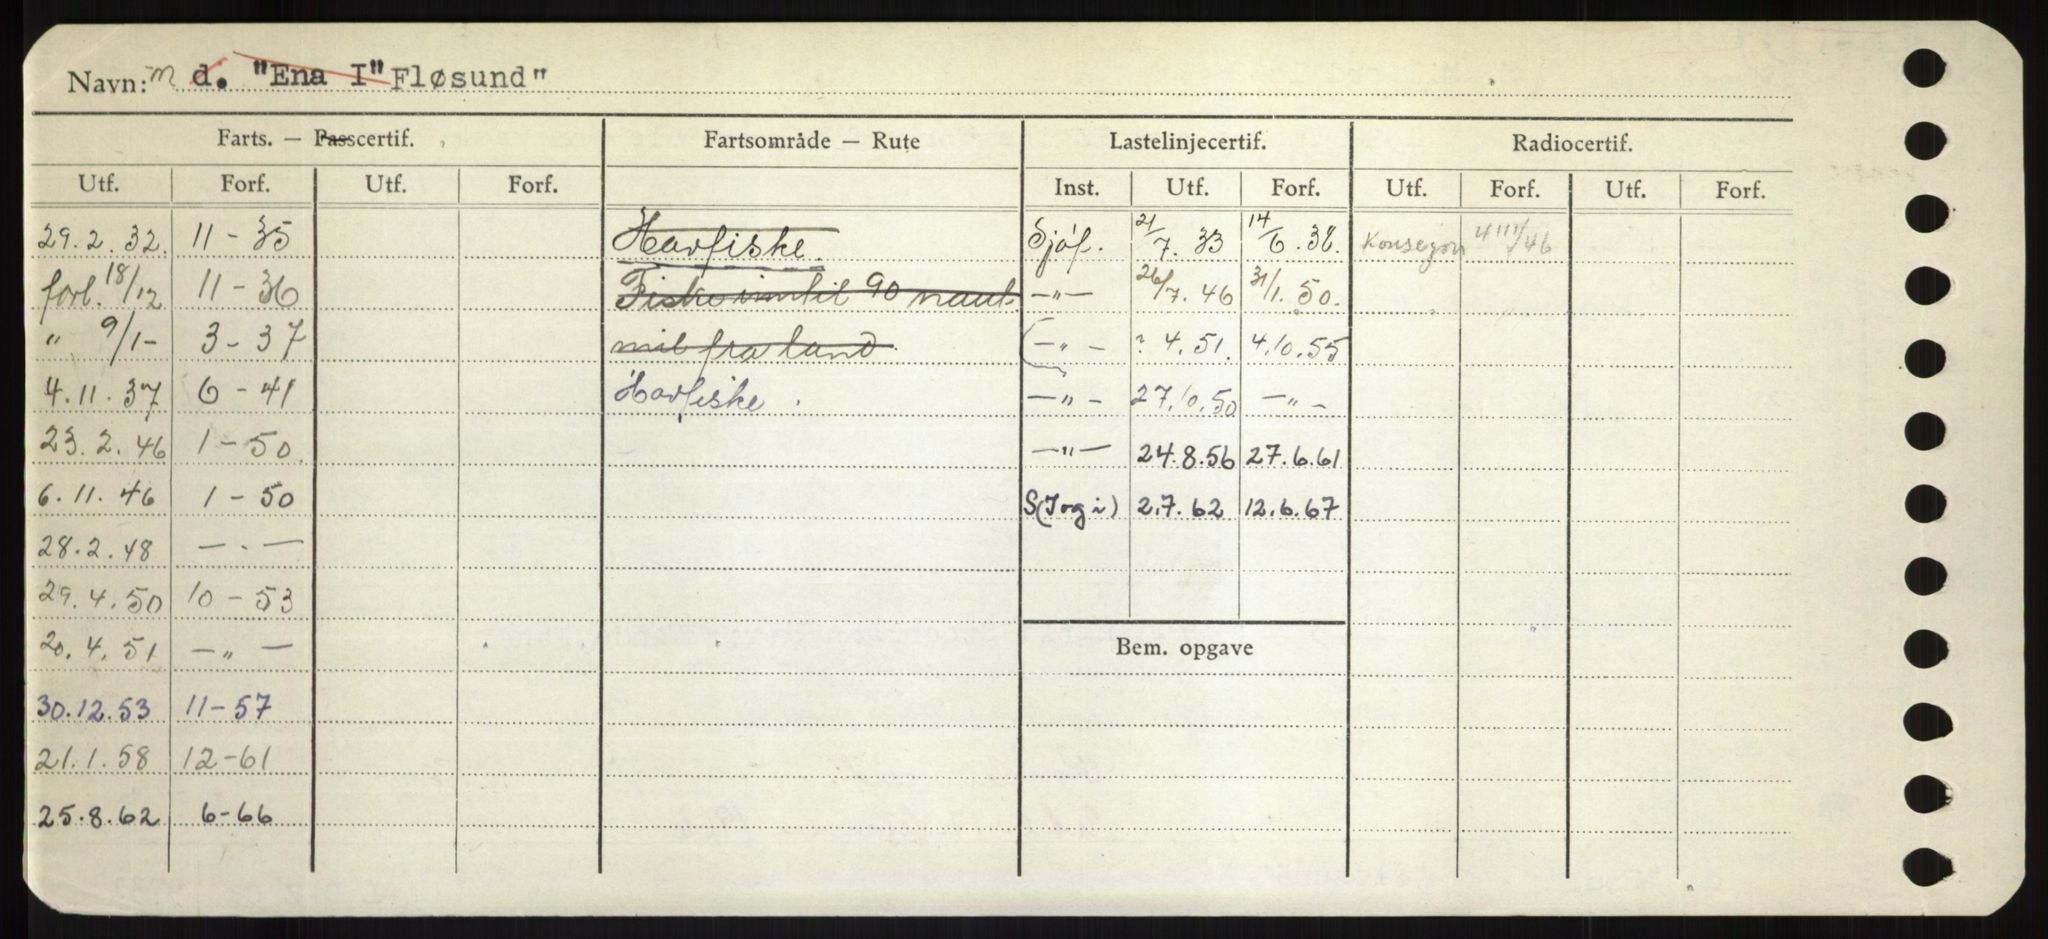 Navn: m d. "Ena I" Fløsund"
Farts. — Passcertif. Fartsområde — Rute Lastelinjecertif. Radiocertif.
Utf. Forf. Utf. Forf. Inst. Utf. Forf. Utf. Forf. Utf. Forf.
29.2.32. 11-35 Havfiske. Sjöf. 21/7.33 14/6.38
forl. 18/12 11-36 Fiske inntil 90 naut. —"— 26/7.46 31/1.50.
" 9/1- 3-37 mil fra land. —"— ? 4.51. 4.10.55
4.11.37 6-41 Havfiske. —"— 27.10.50 —"—
23.2.46 1-50. —"— 24.8.56 27.6.61
6.11.46 1-50 S(I og i) 2.7.62 12.6.67
28.2.48 — . —
29.4.50 10-53
20.4.51 —"— Bem. opgave
30.12.53 11-57
21.1.58 12-61
25.8.62 6-66